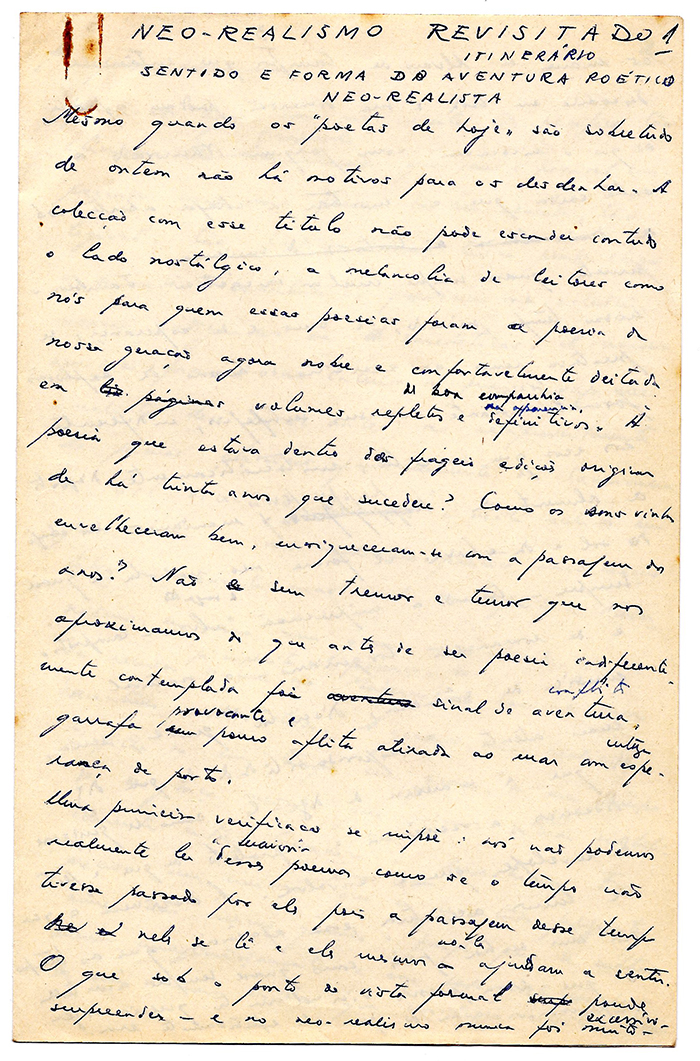 NEO-REALISMO REVISITADO 1
ITINERÁRIO
SENTIDO E FORMA DA AVENTURA POÉTICA
NEO-REALISTA
Mesmo quando os "poetas de hoje" são sobretudo
de ontem não há motivos para os desdenhar. A
colecção com esse título não pode esconder contudo
o lado nostálgico, a melancolia de leitores como
nós para quem essas poesias foram a poesia da
nossa geração agora nobre e confortavelmente deitada
em boa companhia
em páginas volumes repletos e definitivos. À
na aparência
poesia que estava dentro das frágeis edições originais
de há trinta anos que sucedeu? Como os bons vinhos
envelheceram bem, enriqueceram-se com a passagem dos
anos? Não sem tremor e temor que nos
aproximamos do que antes de ser poesia indiferente-
mente contemplada foi aventura sinal de aventura,
conflito
provocante e
garrafa pouco aflita atirada ao mar com espe-
rança de porto.
Uma primeira verificação se impõe: nós não podemos
a maioria
realmente ler desses poemas como se o tempo não
tivesse passado por eles pois a passagem desse tempo
neles se lê e eles mesmos a ajudam a sentir.
O que sob o ponto de vista formal pode
surpreender — e no neo-realismo nunca foi muito
excessivo-